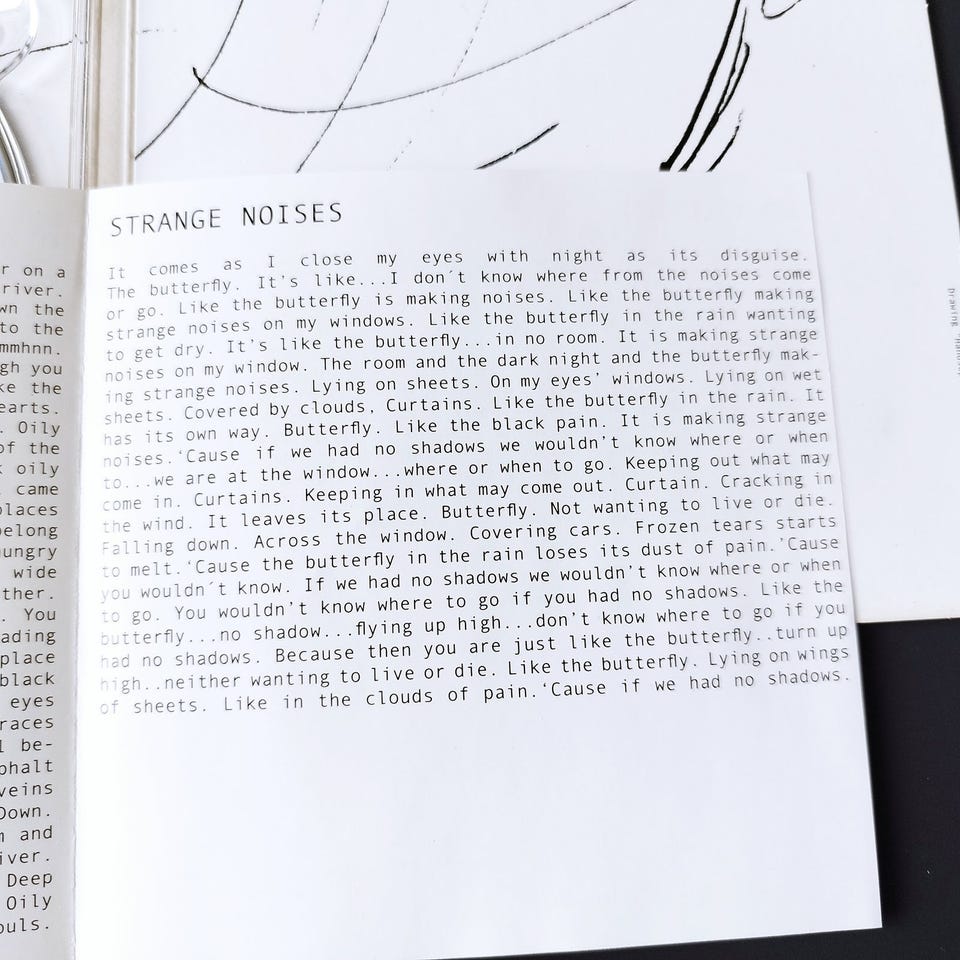 STRANGE NOISES
It comes as I close my eyes with night as its disguise.
The butterfly. It's like...I don´t know where from the noises come
or go. Like the butterfly is making noises. Like the butterfly making
strange noises on my windows. Like the butterfly in the rain wanting
to get dry. It's like the butterfly...in no room. It is making strange
noises on my window. The room and the dark night and the butterfly mak-
ing strange noises. Lying on sheets. On my eyes' windows. Lying on wet
sheets. Covered by clouds, Curtains. Like the butterfly in the rain. It
has its own way. Butterfly. Like the black pain. It is making strange
noises.'Cause if we had no shadows we wouldn't know where or when
to...we are at the window...where or when to go. Keeping out what may
come in. Curtains. Keeping in what may come out. Curtain. Cracking in
the wind. It leaves its place. Butterfly. Not wanting to live or die.
Falling down. Across the window. Covering cars. Frozen tears starts
to melt.'Cause the butterfly in the rain loses its dust of pain.'Cause
you wouldn´t know. If we had no shadows we wouldn't know where or when
to go. You wouldn't know where to go if you had no shadows. Like the
butterfly...no shadow...flying up high...don't know where to go if you
had no shadows. Because then you are just like the butterfly..turn up
high..neither wanting to live or die. Like the butterfly. Lying on wings
of sheets. Like in the clouds of pain.'Cause if we had no shadows.
r on a
river.
wn the
to the
mmhnn.
gh you
ke the
earts.
. Oily
of the
k oily
came
places
belong
hungry
wide
ther.
. You
ading
place
black
eyes
races
l be-
phalt
veins
Down.
m and
iver.
Deep
Oily
ouls.
drawing